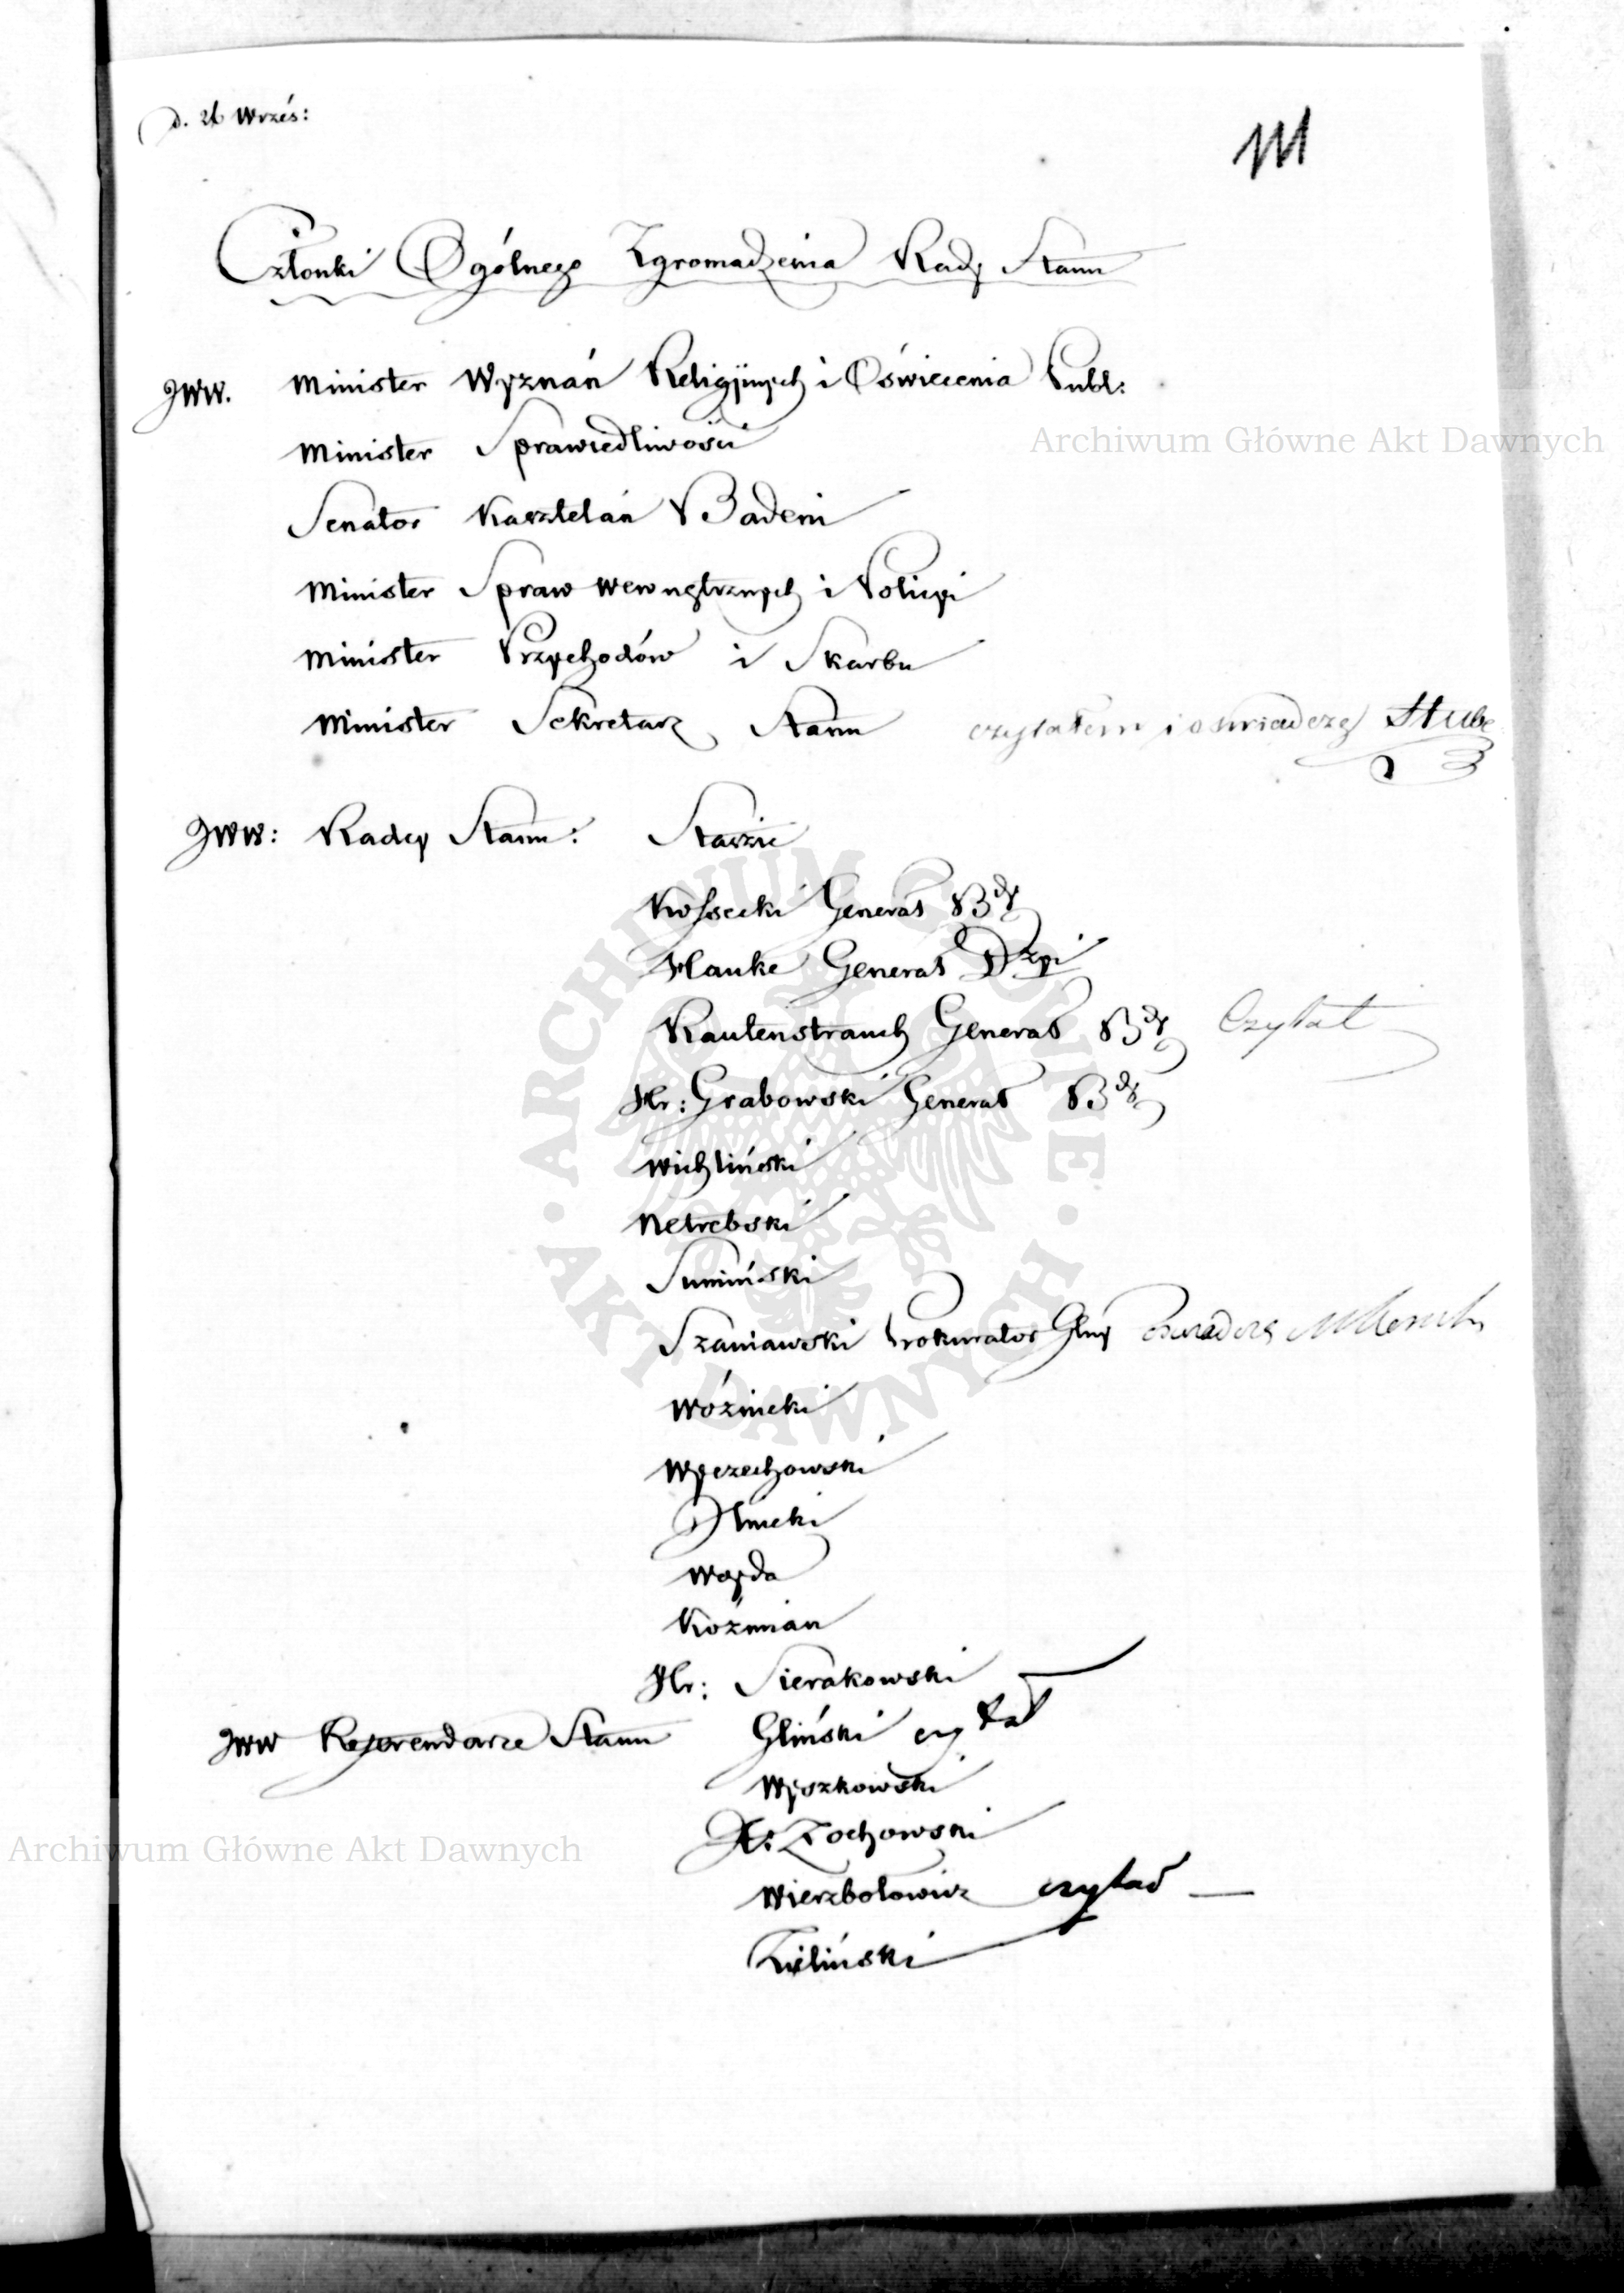 d. 26 Wrześ:
111
Członki Ogólnego Zgromadzenia Rady Stanu
JWW. Minister Wyznań Religijnych i Oświecenia Publ:
Archiwum Główne Akt Dawnych
Minister Sprawiedliwości
Senator Kasztelan Badeni
Minister Spraw Wewnętrznych i Policyi
Minister Przychodów i Skarbu
Minister Sekretarz Stanu czytałem i oświadczę
JWW: Radcy Stanu: Staszic
Kossecki Generał Bdy
Hauke Generał Dzyi
Rautenstrauch Generał Bdy Czytał
Hr: Grabowski Generał Bdy
Wichliński
Netrebski
Sumiński
Szaniawski Prokurator Glny
Woźnicki
Wyczechowski
Wojda
Koźmian
Hr: Sierakowski
JWW Referendarze Stanu Gliński czytał
Wyszkowski
X: Żochowski
Archiwum Główne Akt Dawnych
Wierzbołowicz czytał —
Zieliński
ARCHIWUM GŁÓWNE · AKT DAWNYCH ·